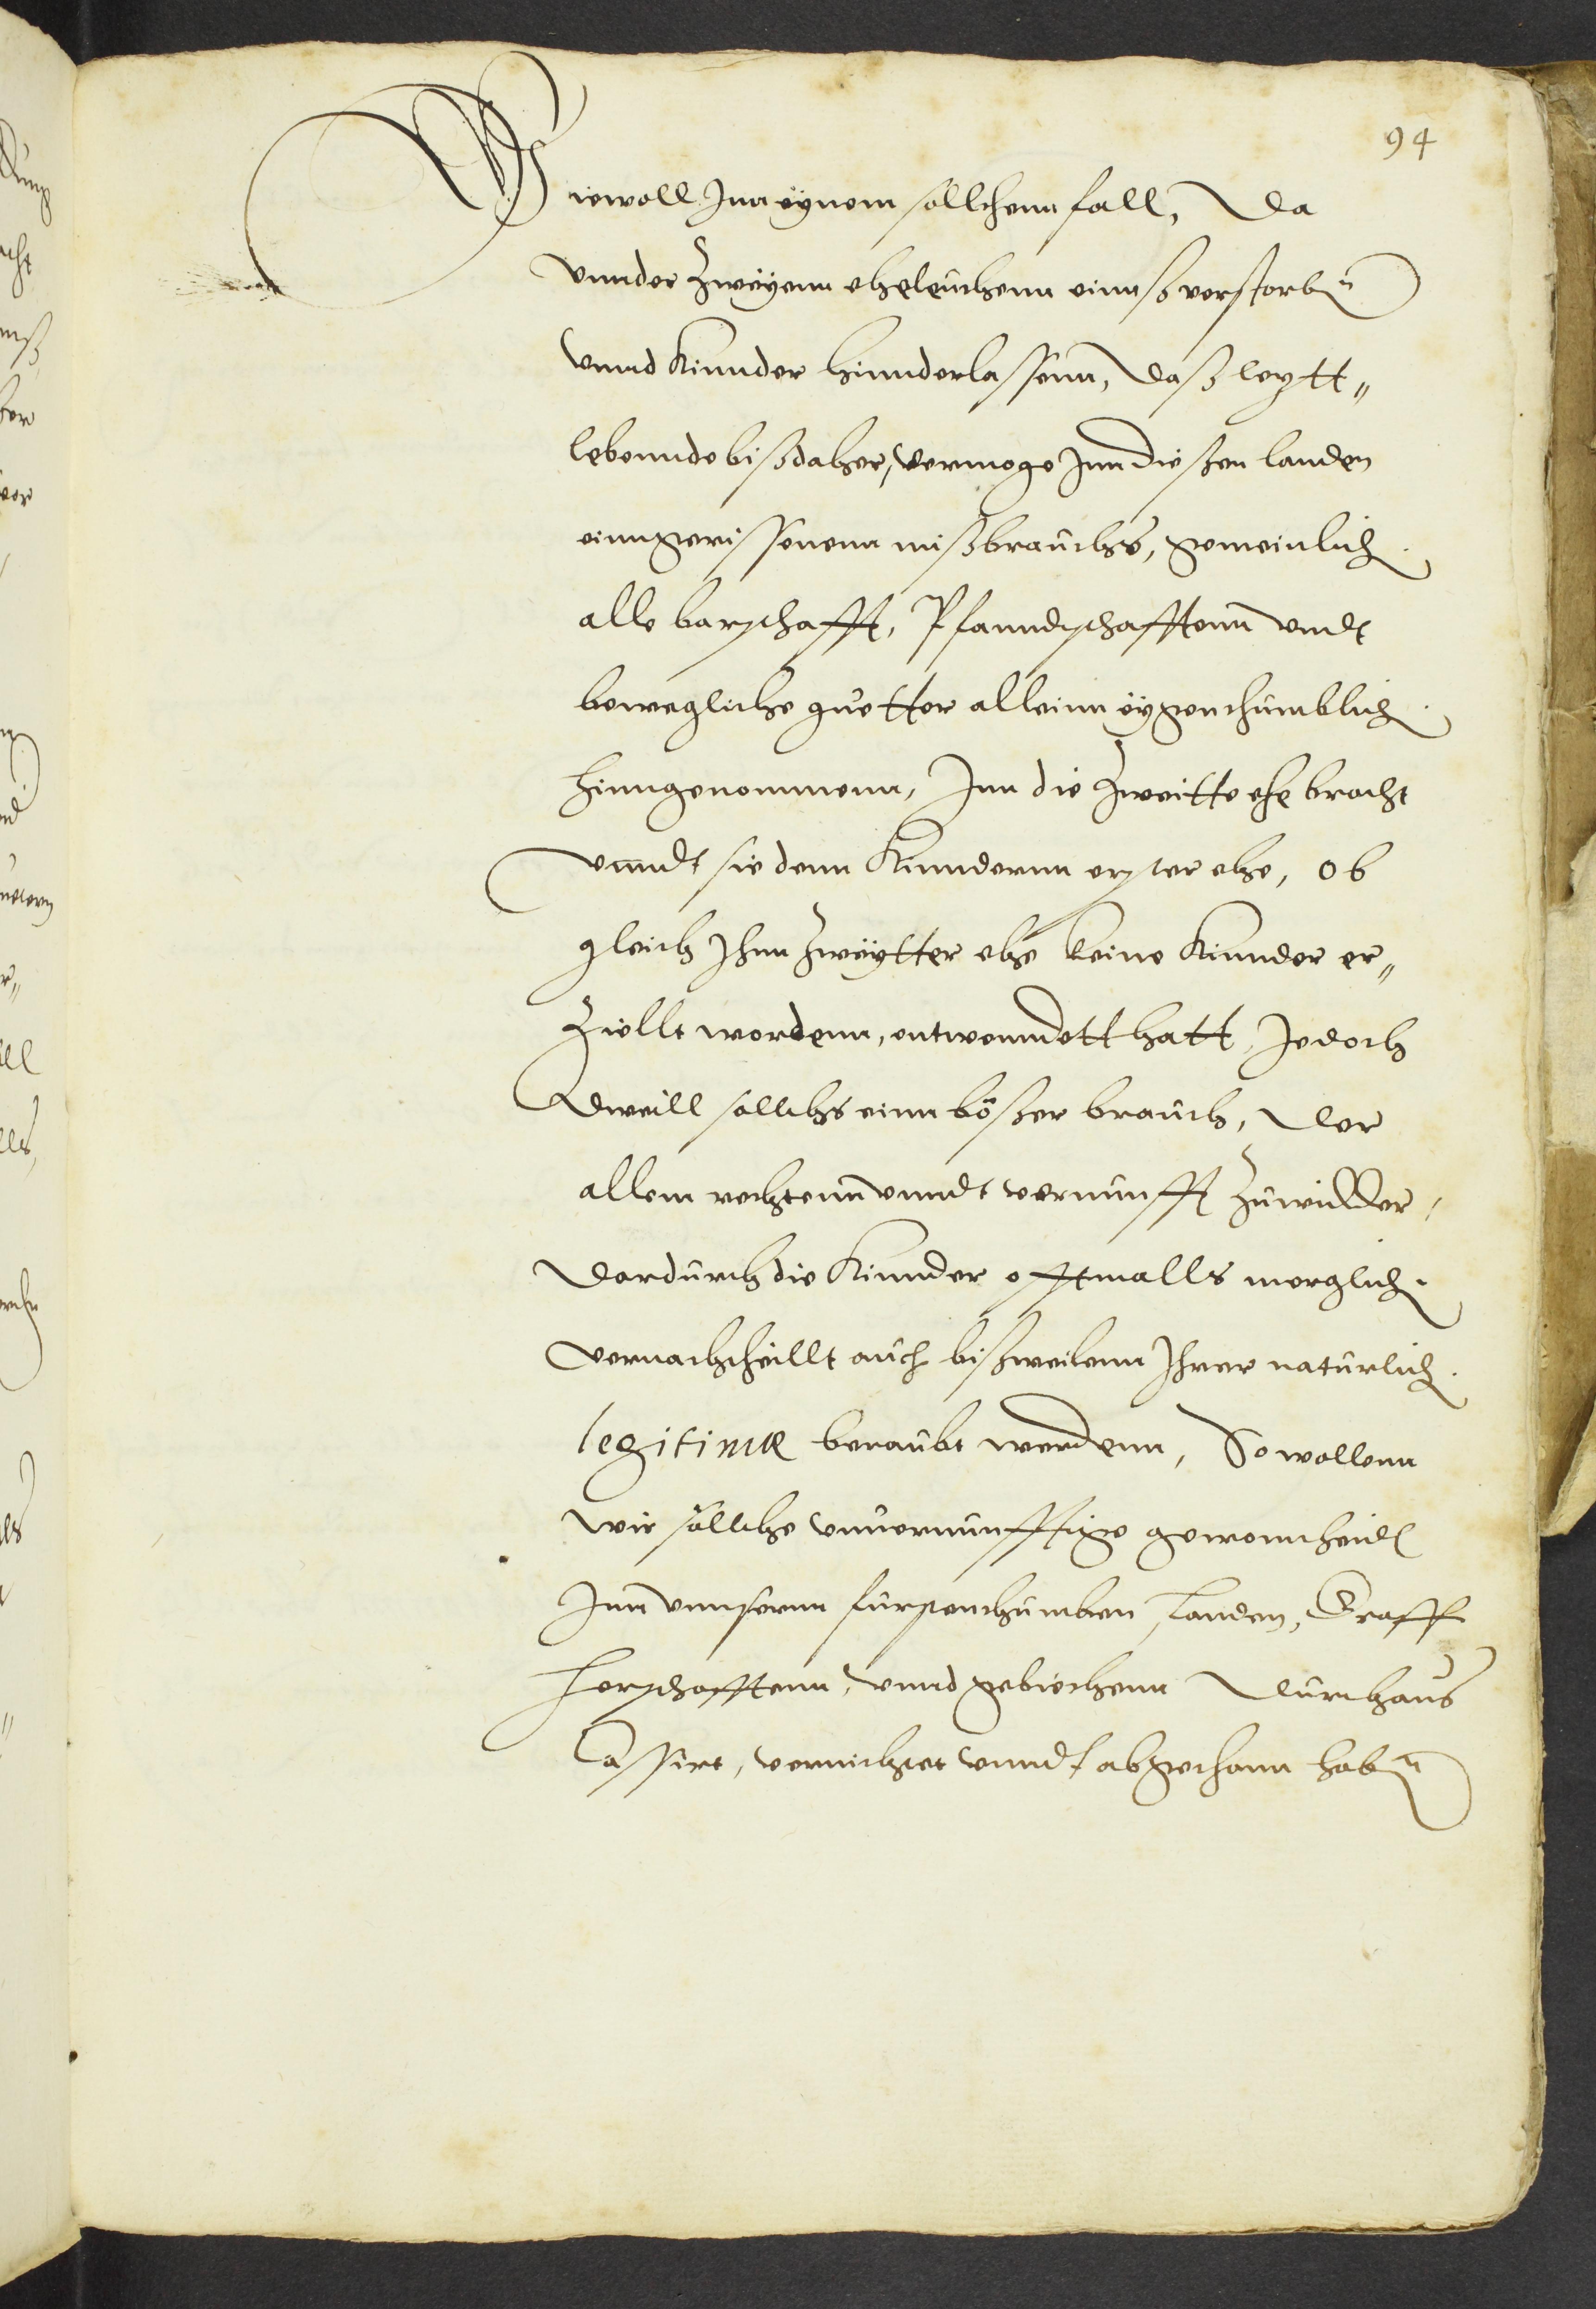 94
Wiewoll Inn eÿnem sollchenn fall, Da
vnnder Zweÿenn eheleuthenn einnß verstorbn̄
vnnd Kinnder hinnderlassenn, daß leztt„
lebennde bißdaher, vermoge Inn dießen landen
einngerissenenn mißbrauchs, gemeinlich
alle barschafft, Pfanndschafftenn vndt
bewegliche guetter alleinn eÿgenthumblich
hinngenommenn, Inn die Zweitte ehe bracht
vnndt sie denn Kinndernn erster ehe, ob
gleich Ihnn Zweÿtter ehe keine Kinnder er„
Ziellt wordenn, entwenndett hatt, Jedoch
Dweill sollichs einn bößer brauch, der
allem rechtenn vnndt vernunfft Zuwidder,
Dardurch die Kinnder offtmalls merglich
vernachtheillt auch bißweilenn Ihrer naturlich
legitimæ beraubt werdenn, So wollenn
wir solliche vnuernunfftige gewonnheidt
Inn vnnsernn furstenthumben, Landen, Graff
herschafftenn, vnnd gebiethenn Durchaus
Cassirt, vernichtet vnndt abgethann habn̄